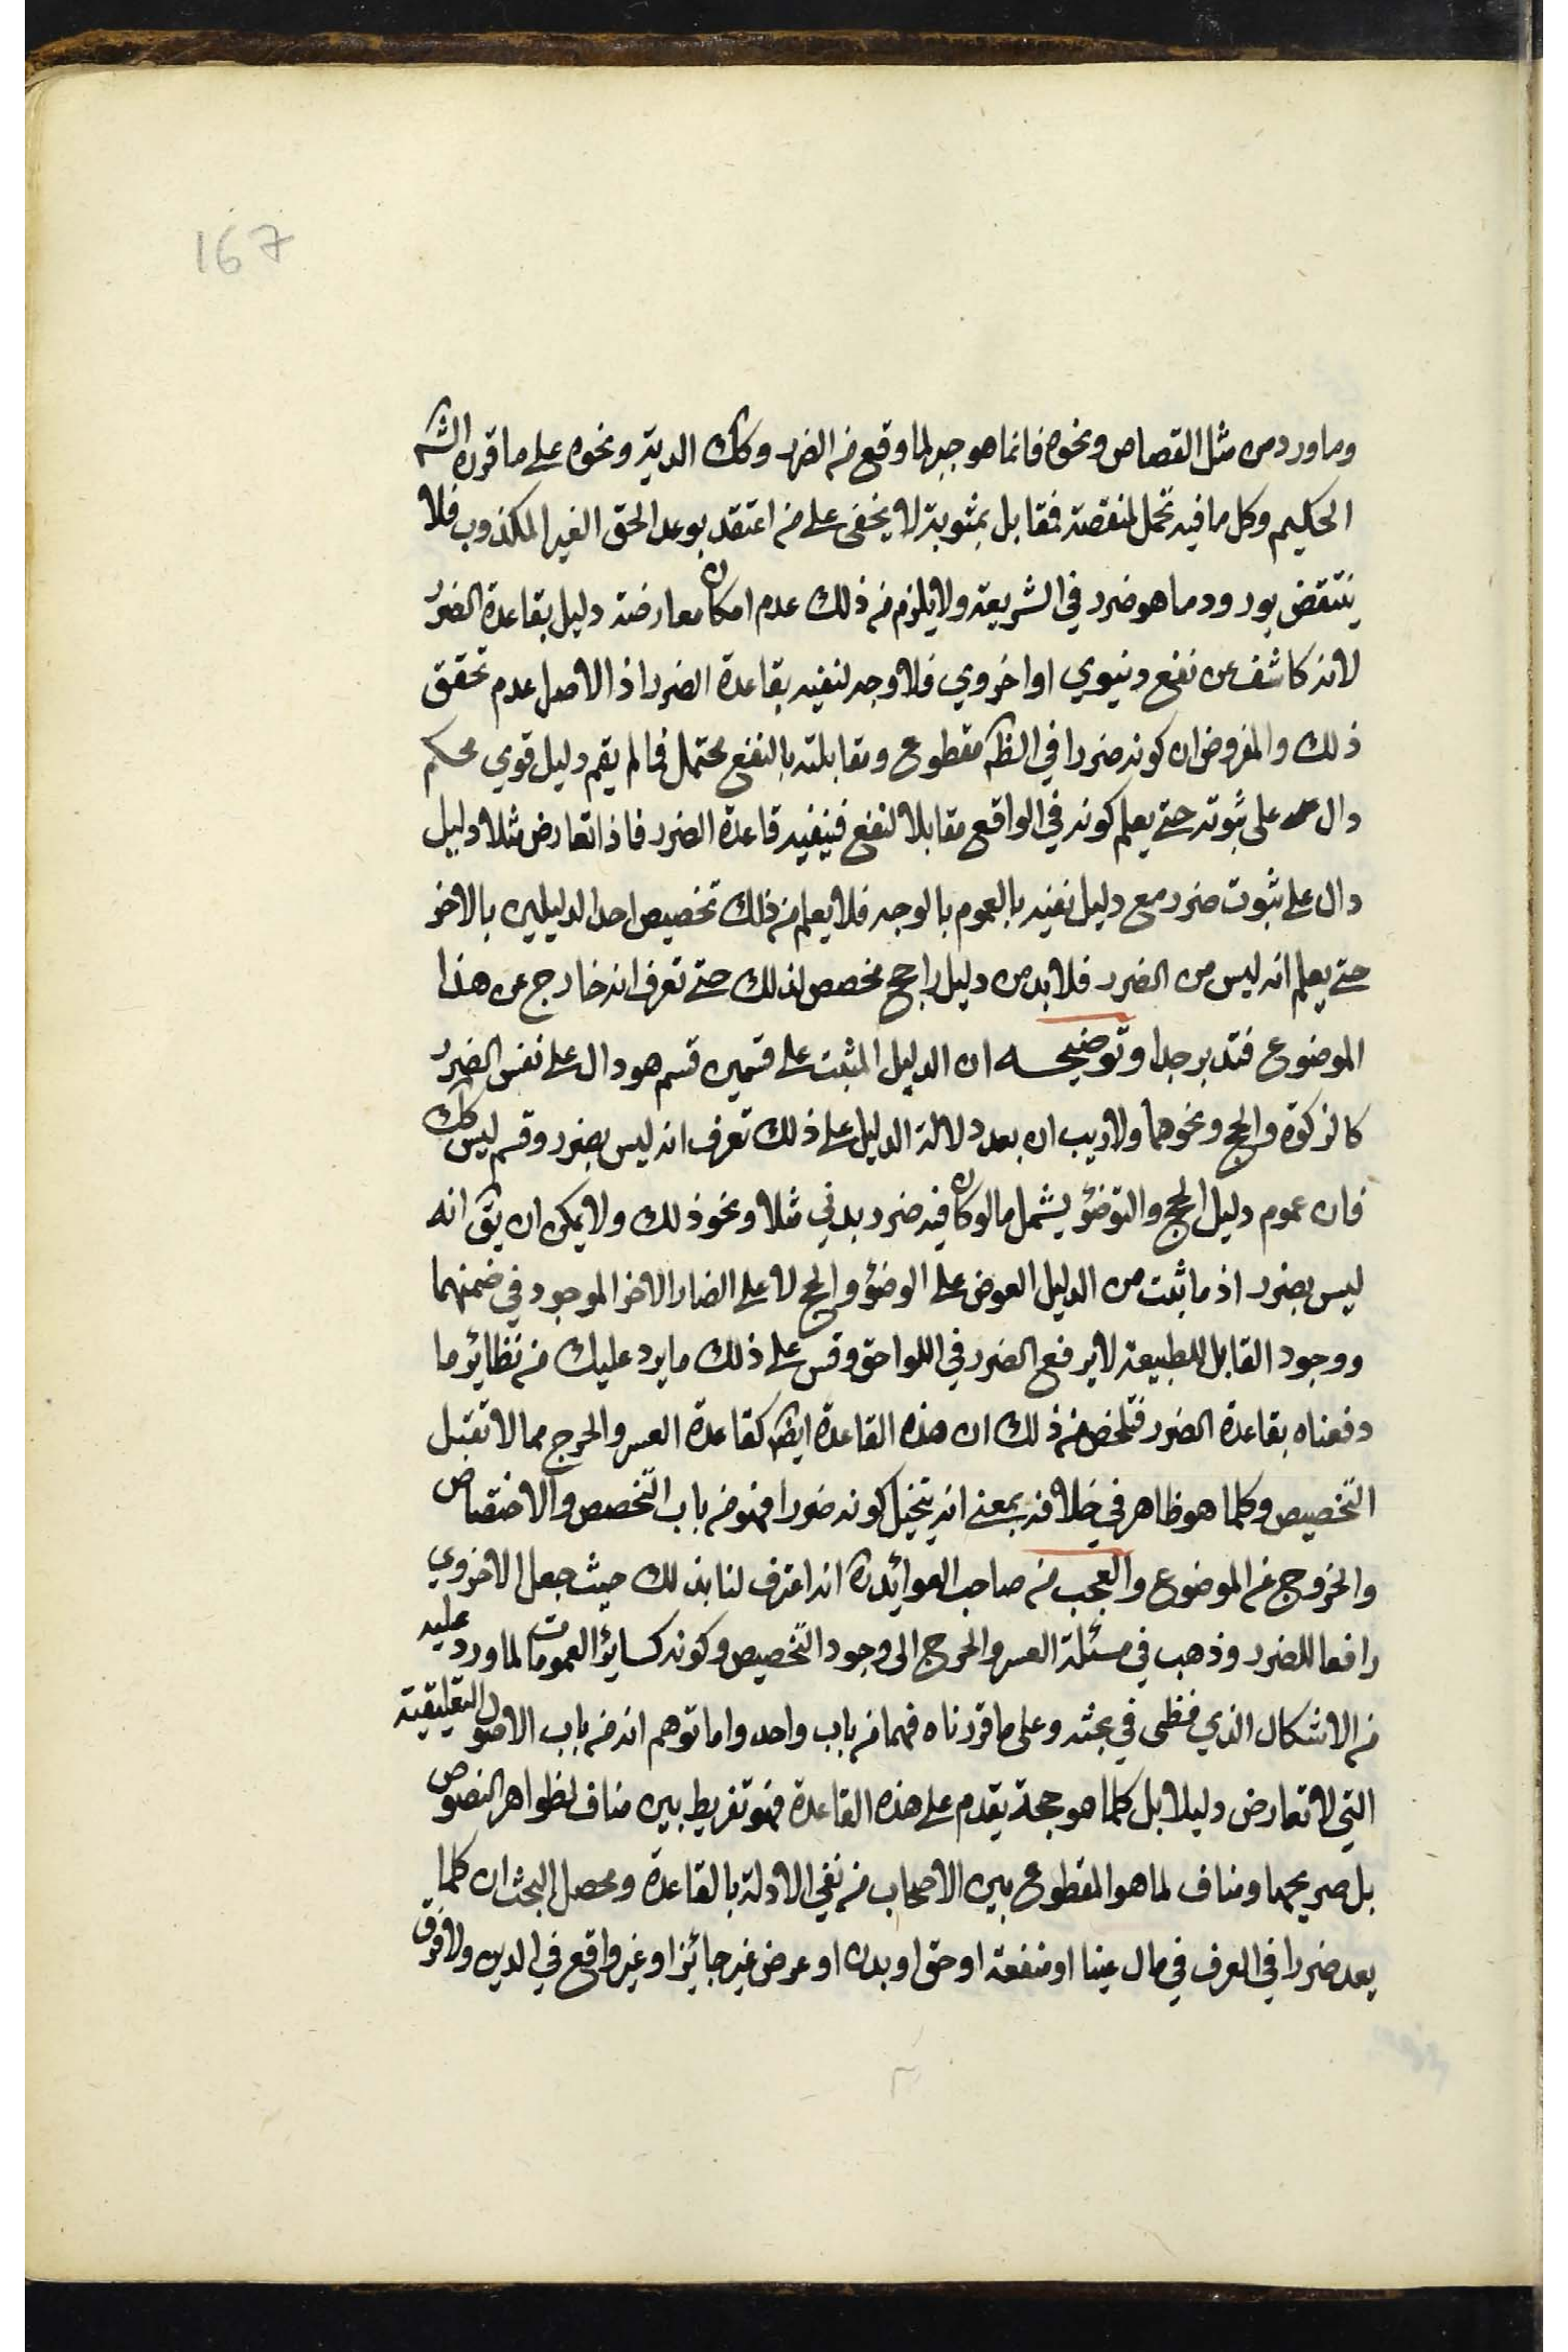 167
وما ورد من مثل القصاص ونحوه فانما هو جبر لما وقع من الضرر وكك الدية ونحوه على ما قرره الشم
الحكيم وكل ما فيه تحمل لمنقصة فمقابل بمثوبة لا يخفى على من اعتقد بوعد الحق الغير المكذوب فلا
ينتقض بورود ما هو ضرر في الشريعة ولا يلزم من ذلك عدم امكان معارضة دليل بقاعدة الضرر
لانه كاشف عن نفع دنيوي او اخروي فلا وجه لنفيه بقاعدة الضرر اذ الاصل عدم تحقق
ذلك والمفروض ان كونه ضررا في الظم مقطوع ومقابلته بالنفع محتمل فما لم يقم دليل قوي محكم
دال على ثبوته حتى يعلم كونه في الواقع مقابلا لنفع فينفيه قاعدة الضرر فاذا تعارض مثلا دليل
دال على ثبوت ضرر مع دليل نفيه بالعموم بالوجه فلا يعلم من ذلك تخصيص احد الدليلين بالاخر
حتى يعلم انه ليس من الضرر فلابد من دليل راجح مخصص لذلك حتى تعرف انه خارج عن هذا
الموضوع فتدبر جدا وتوضيحه ان الدليل المثبت على قسمين قسم هو دال على نفس الضرر
كالزكوة والحج ونحوهما ولا ريب ان بعد دلالة الدليل على ذلك تعرف انه ليس بضرر وقسم ليس كك
فان عموم دليل الحج والتوضؤ يشمل ما لو كان فيه ضرر بدني مثلا ونحو ذلك ولا يمكن ان يق انه
ليس بضرر اذ ما ثبت من الدليل العوض على الوضؤ والحج لا على الضار الاخر الموجود في ضمنهما
ووجود القابل للطبيعة لا يرفع الضرر في اللواحق وقس على ذلك ما يرد عليك من نظائر ما
دفعناه بقاعدة الضرر فتلخص من ذلك ان هذه القاعدة ايضا كقاعدة العسر والحرج مما لا تقبل
التخصيص وكلما هو ظاهر في خلافه بمعنى انه يتخيل كونه ضررا فهو من باب التخصص والاختصاص
والخروج عن الموضوع والعجب من صاحب العوائد ره انه اعترف لنا بذلك حيث جعل الاخروي
رافعا للضرر وذهب في مسئلة العسر والحرج الى وجود التخصيص وكونه كسائر العمومات لما ورد عليه
من الاشكال الذي مضى في بحثه وعلى ما قررناه فهما من باب واحد واما توهم انه من باب الاصول التعليقية
التي لا تعارض دليلا بل كلما هو حجة يقدم على هذه القاعدة فهو تفريط بين مناف لظواهر النصوص
بل صريحها ومناف لما هو المقطوع بين الاصحاب من نفي الادلة بالقاعدة ومحصل البحث ان كلما
يعد ضررا في العرف في مال عينا او منفعة او حق او بدن او عرض غير جائز او غير واقع في الدين ولا فرق